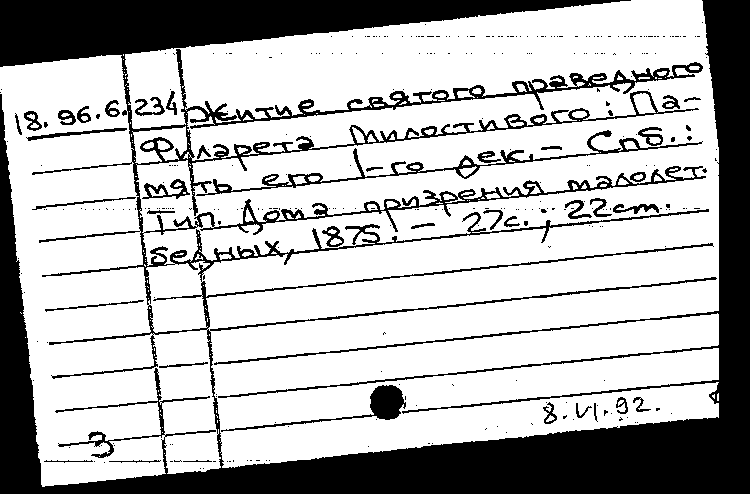 18.96.6.234 Житие святого праведного
Филарета Милостивого : Па-
мять его 1-го дек. – Спб. :
Тип. Дома призрения малолет.
бедных, 1875! – 27с. ; 22cm.
8.VI.92.
3